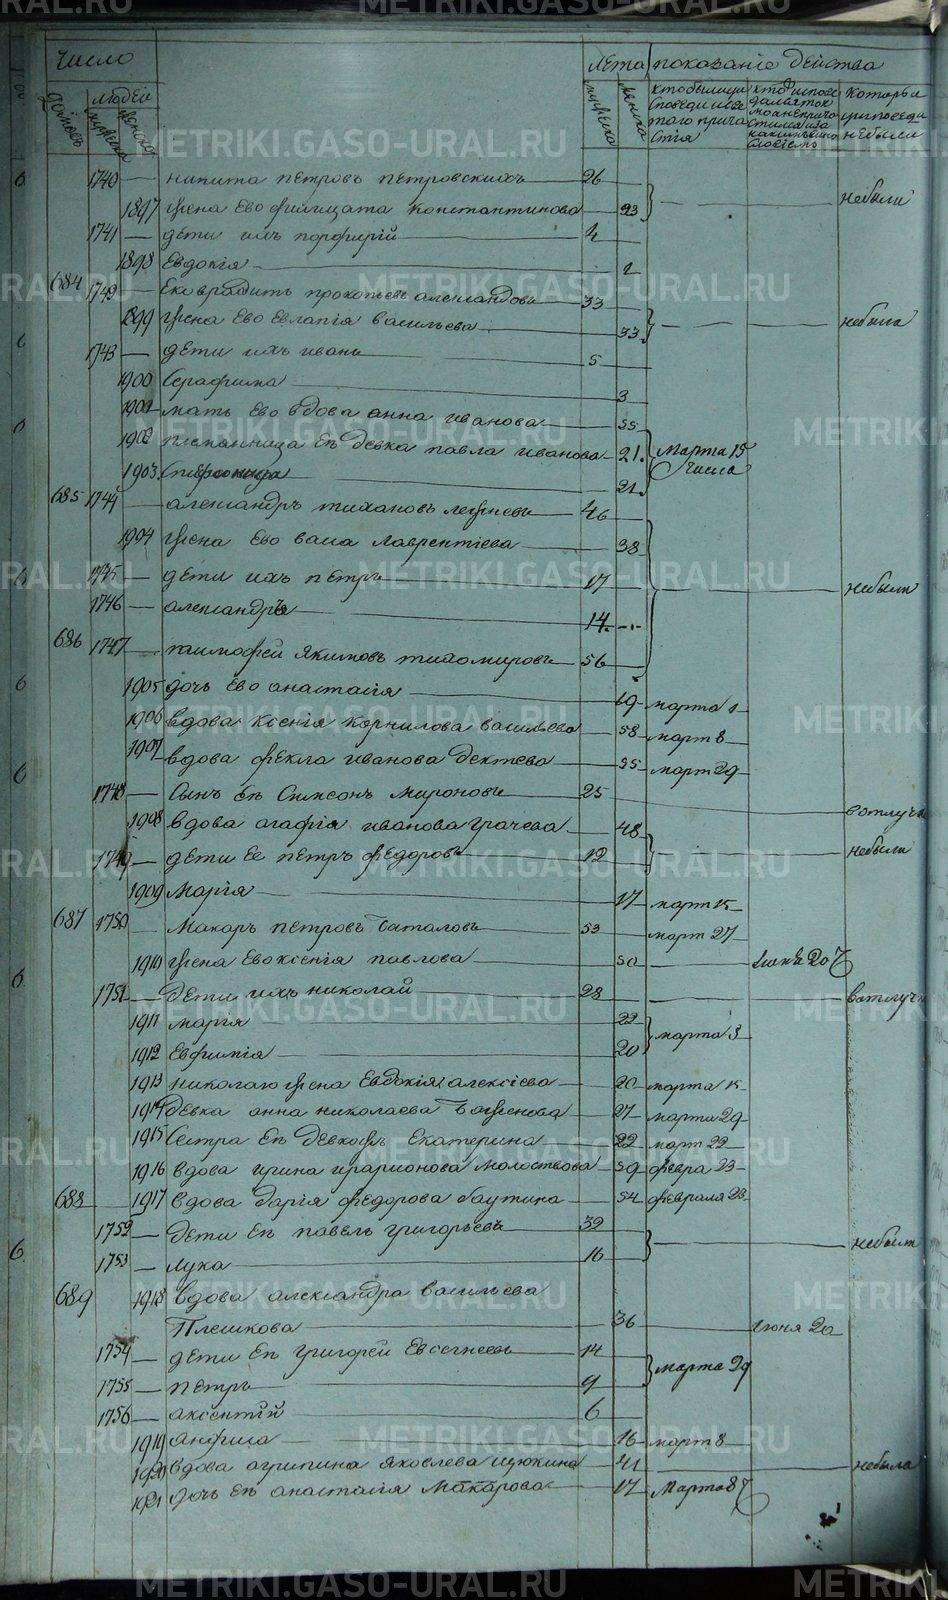 Число лѣта показанiе действа
домовъ людей мужеска женска мужеска женска кто были у исповеди и святого причастiя кто исповедались токмо а непричастились и за какимъ виновословiемъ которыя при исповеди не были
1740 — никита петровъ петровскихъ — 26
1897 жена ево филицата константинова — 23 — небыли
1741 — дети ихъ порфирiй — 4
1898 Евдокiя — 2
684 1742 — прокопьевъ александровъ — 33
1899 жена ево евлапiя васильева — 33 — небыли
1743 — дети ихъ иванъ — 5
1900 Серафима — 3
1901 мать ево вдова анна иванова — 55
1902 племянница ея девка павла иванова — 21. Марта 15 числа
1903 — 21.
685 1744 — александръ тихановъ — 46
1904 жена ево васа лаврентiева — 38
1745 — дети ихъ петръ — 17 — небыли
1746 — александръ — 14.
686 1747 — тимофей якимовъ тихомировъ — 56
1905 дочь ево анастасiя — 19 марта 1
1906 вдова ксенiя корнилова васильева — 58 март 8
1907 вдова фекла иванова дектева — 55 март 29
1748 — сынъ ея Симеонъ мироновъ — 25 — вотлучке
1908 вдова агафiя иванова грачева — 48
1749 — дети ее петръ федоровъ — 12 — небыли
1909 марiя — 17 март 15
687 1750 — Макаръ петровъ баталовъ — 53 март 27
1910 жена ево ксенiя павлова — 50 — iюня 20
1751 — дети ихъ николай — 28 — вотлучке
1911 марiя — 22
1912 Евфимiя — 20 марта 3
1913 николаю жена Евдокiя алексiева — 20 марта 15
1914 девка анна николаева баженова — 27 марта 29
1915 Сестра ея девка Екатерина — 22 март 22
1916 вдова ирина иларионова молоствова — 59 февра 23
688 1917 вдова дарiя федорова баутина — 54 февраля 23
1752 — дети ея павелъ григорьевъ — 32
1753 — лука — 16 — небыли
689 1918 вдова александра васильева
Плешкова — 36 — iюня 20
1754 — дети ея григорей Евсегнеевъ — 14
1755 — петръ — 9 марта 29
1756 — аксентiй — 6
1919 анфиса — 16 март 8
1920 вдова агрипина яковлева щукина — 41 — небыла
1921 дочь ея анастасiя макарова — 17 Марта 8